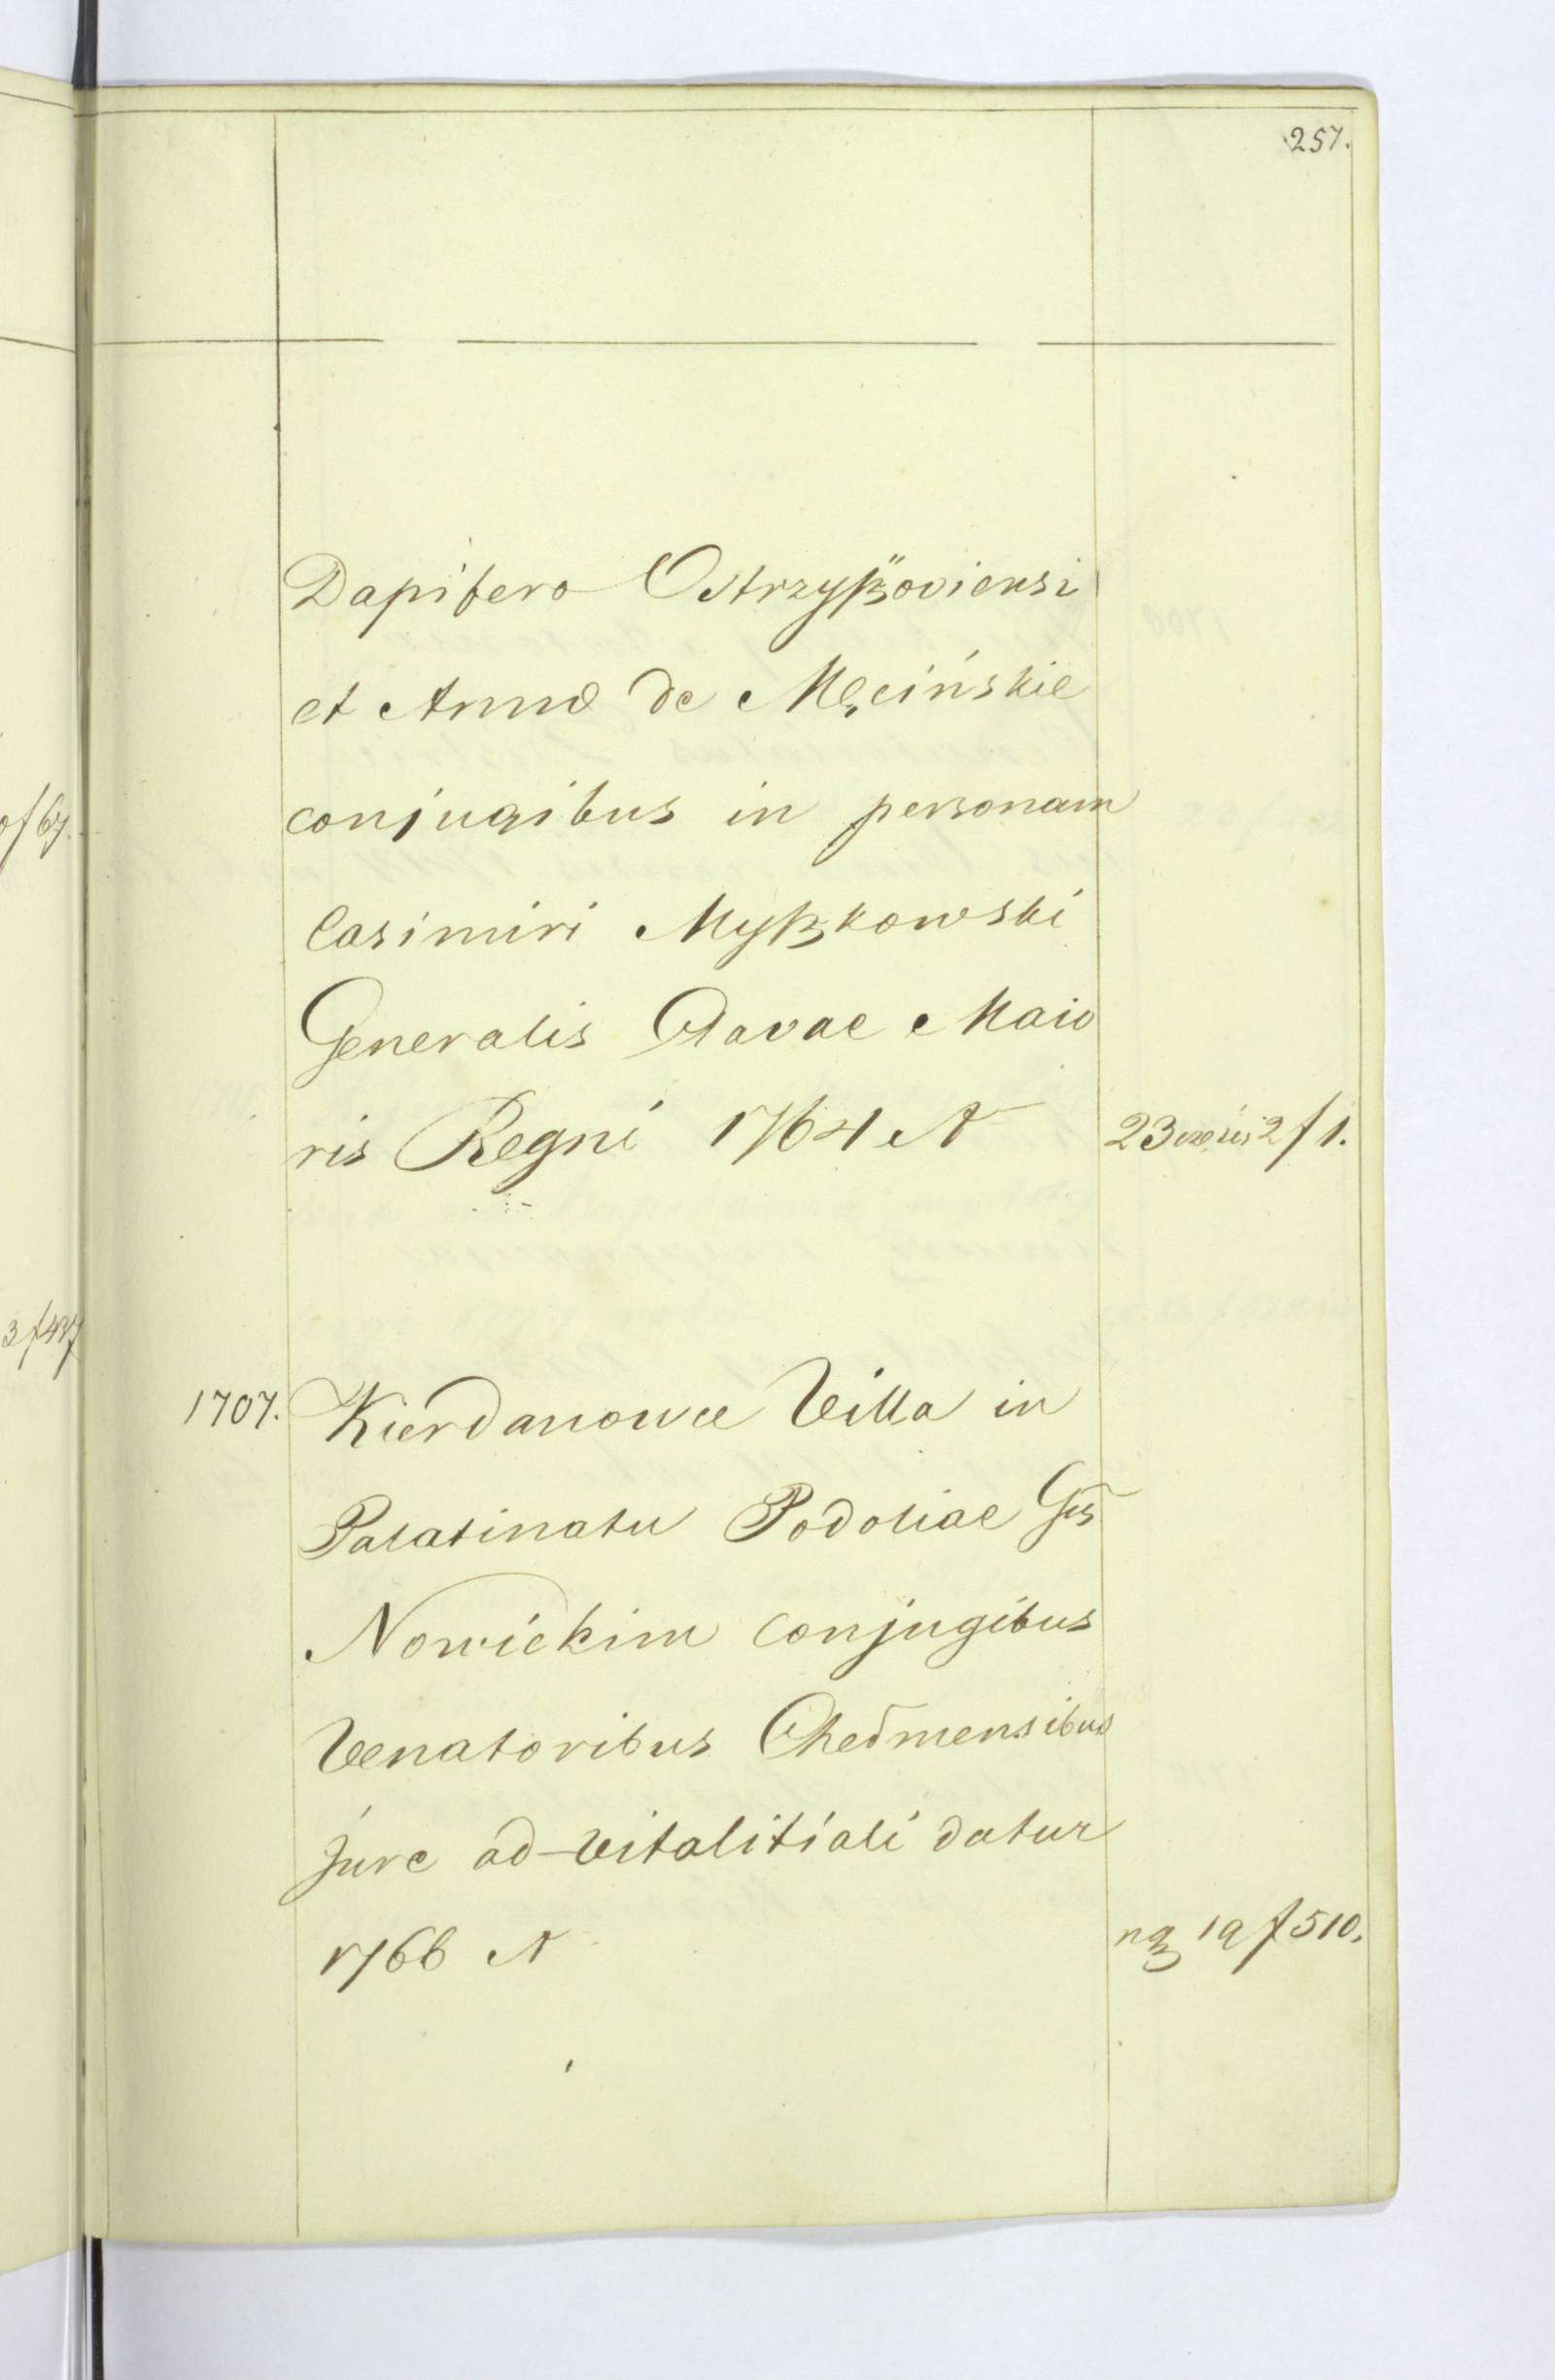 257.
Dapifero Ostrzyßoviensi
et Annæ de Męcińskie
conjugibus in personam
Casimiri Myßkowski
Generalis Clavae Maio
ris Regni 1764 A
23 część 2 f 1.
1707. Kierdanowce Villa in
Palatinatu Podoliae Gs
Nowickim conjugibus
Venatoribus Chełmensibus
jure ad-vitalitiali datur
1766 A
19 f 510.